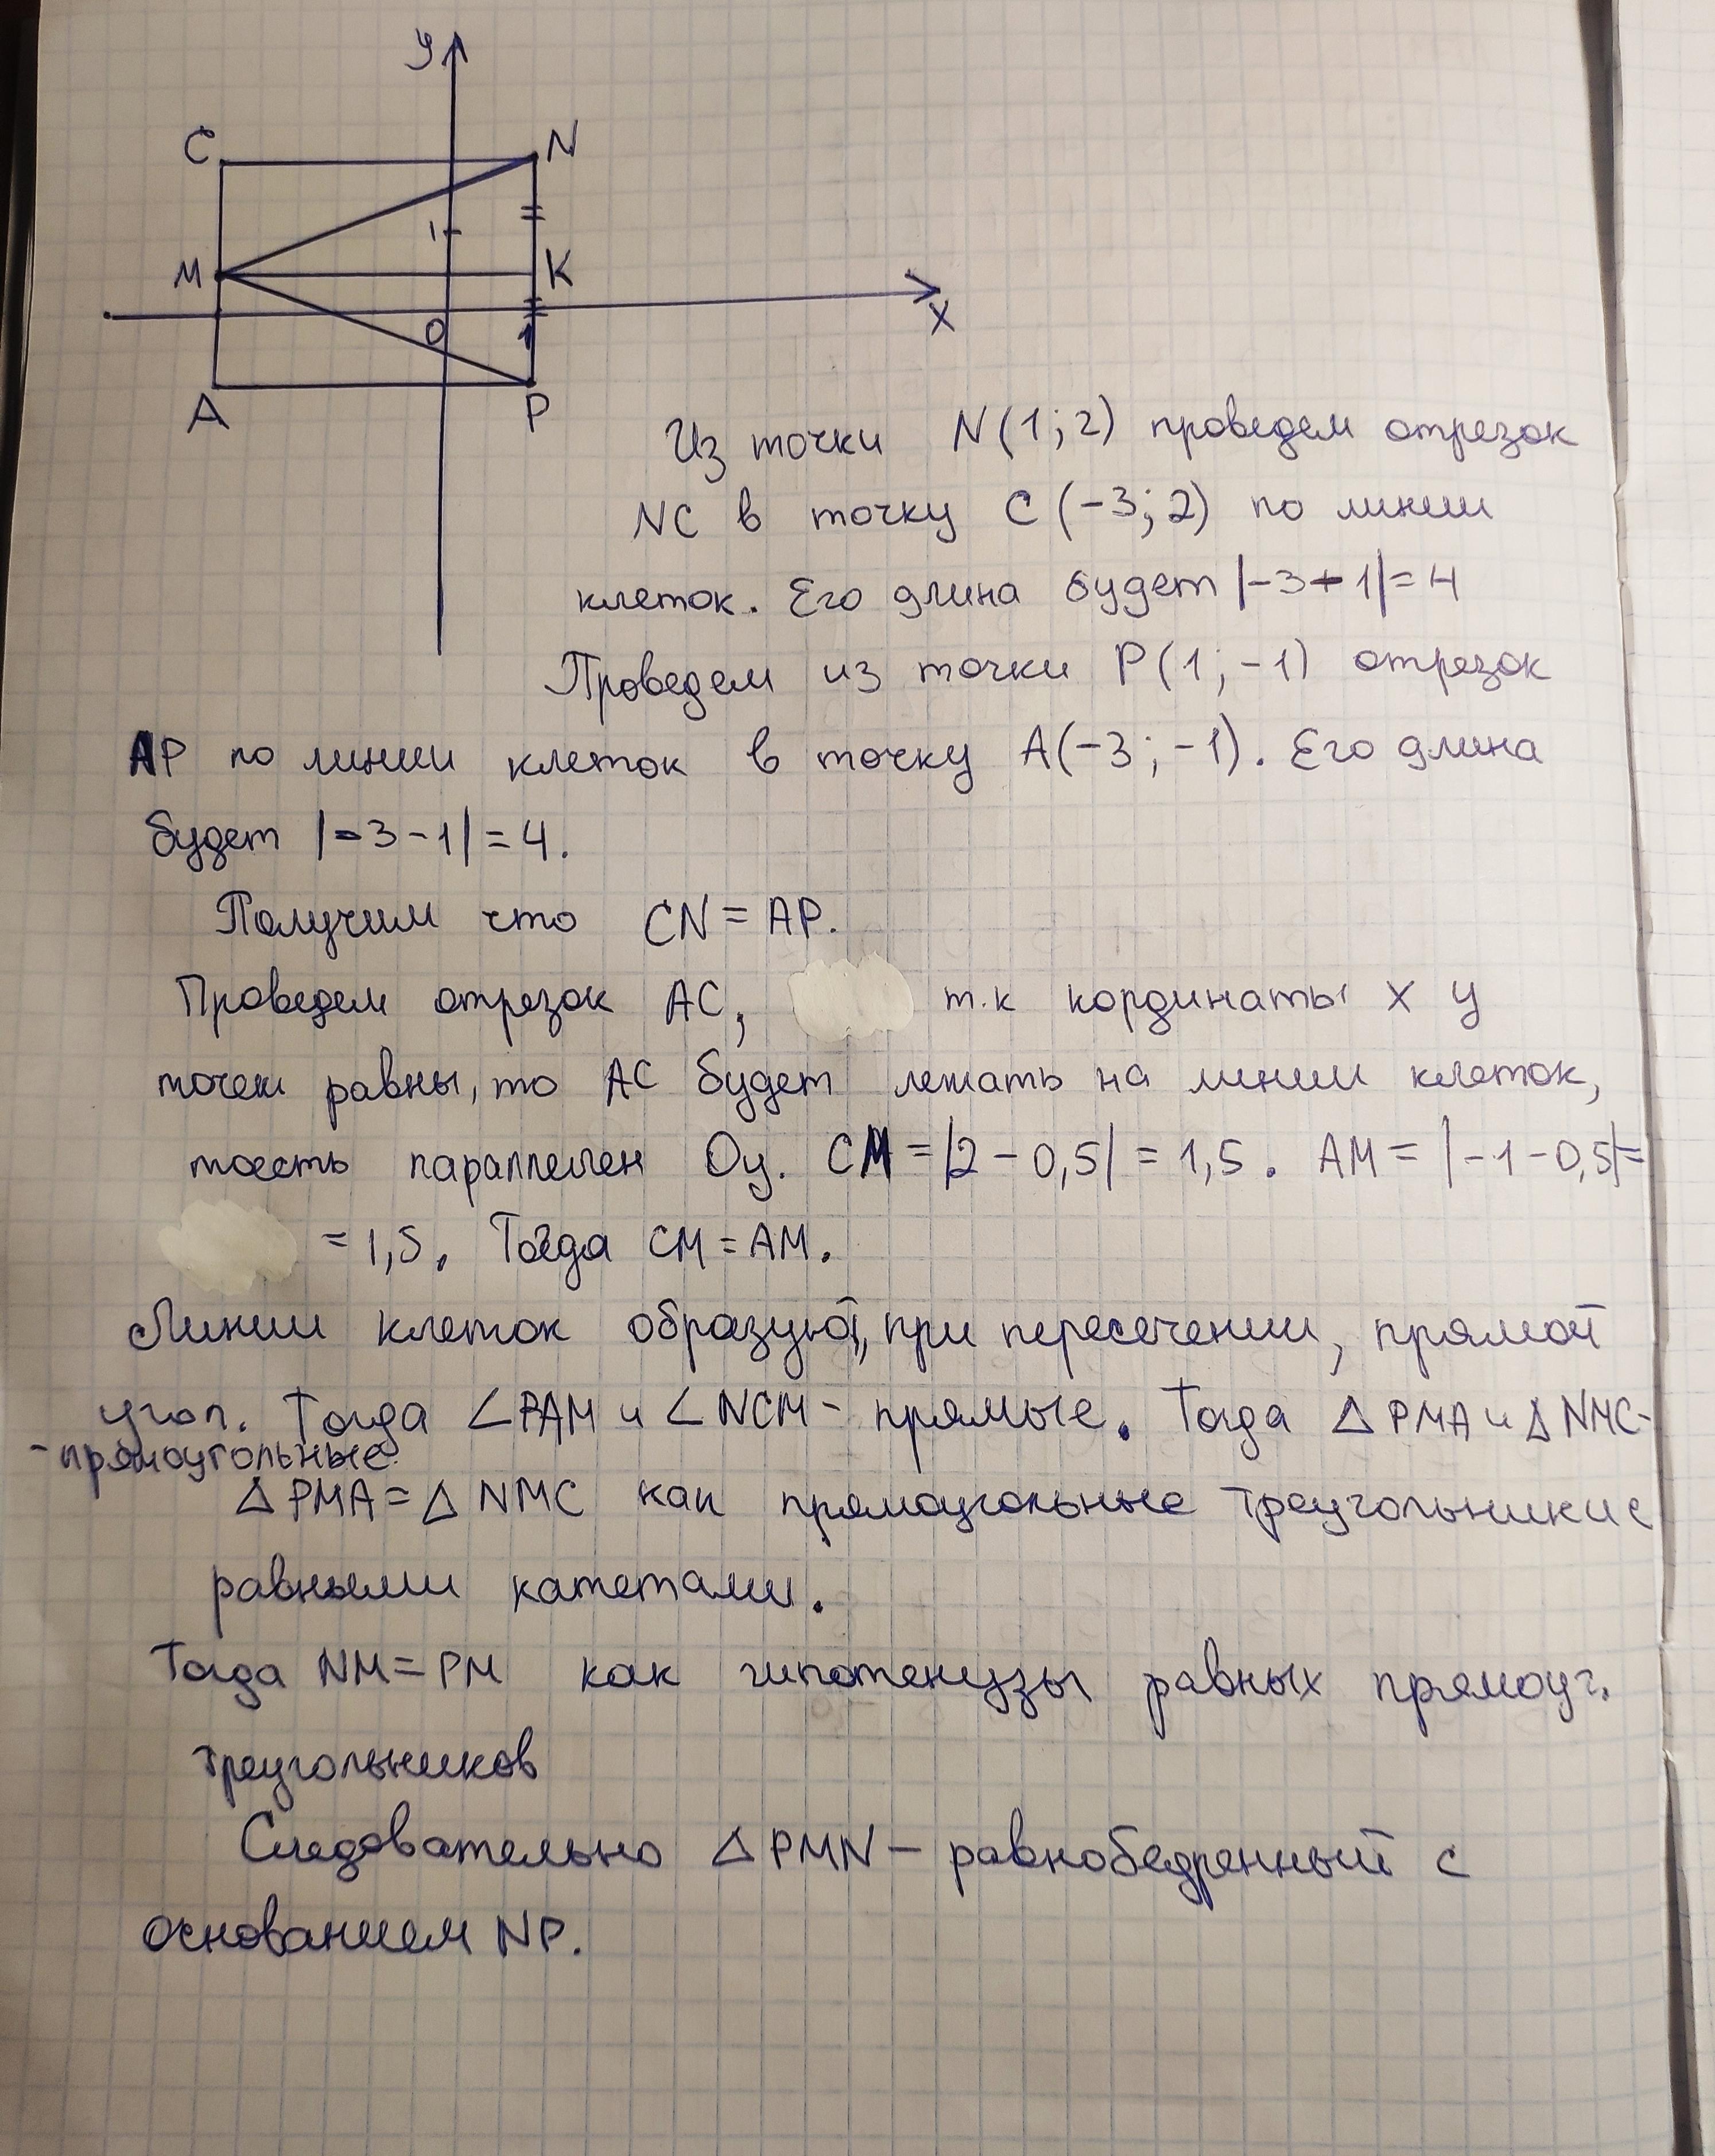 y
C N
1
M K
0 1 X
A P
Из точки N(1;2) проведем отрезок
NC в точку C(-3;2) по линии
клеток. Его длина будет |-3-1|=4
Проведем из точки P(1;-1) отрезок
AP по линии клеток в точку A(-3;-1). Его длина
будет |-3-1|=4.
Получим что CN=AP.
Проведем отрезок AC, т.к кординаты x у
точек равны, то AC будет лежать на линии клеток,
тоесть параллелен Oy. CM=|2-0,5|=1,5. AM=|-1-0,5|=
=1,5. Тогда CM=AM.
Линии клеток образуют, при пересечении, прямой
угол. Тогда ∠PAM и ∠NCM- прямые. Тогда △PMA и △NMC-
-прямоугольные.
△PMA=△NMC как прямоугольные треугольники с
равными катетами.
Тогда NM=PM как гипотенузы равных прямоуг.
треугольников
Следовательно △PMN- равнобедренный с
основанием NP.